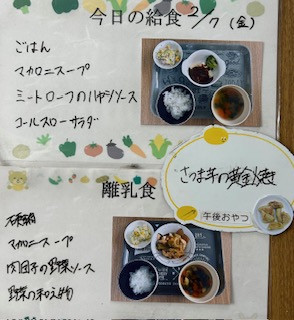 今日の給食 2/7 (金)
ごはん
マカロニスープ
ミートローフのハヤシソース
コールスローサラダ
さつま芋の黄金焼き
午後おやつ
離乳食
マカロニスープ
肉団子の野菜ソース
野菜の和え物